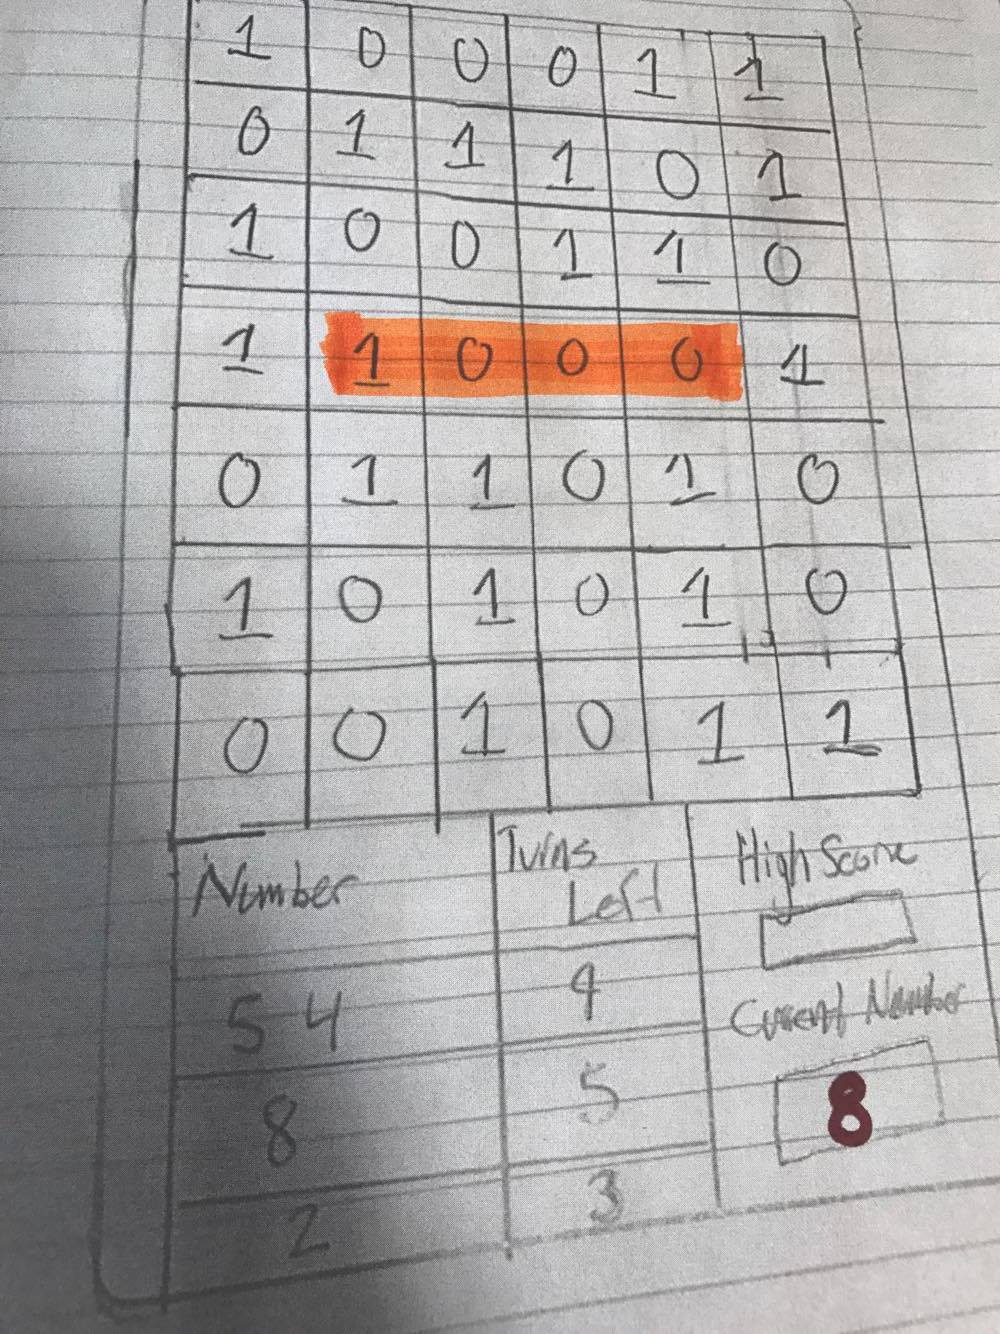 1 0 0 0 1 1
0 1 1 1 0 1
1 0 0 1 1 0
1 1 0 0 0 1
0 1 1 0 1 0
1 0 1 0 1 0
0 0 1 0 1 1
Number Turns Left High Score
54 4
Current Number
8 5 8
2 3